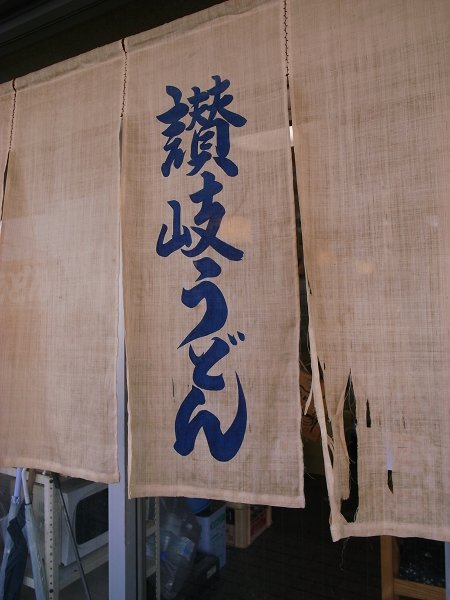 讃岐うどん